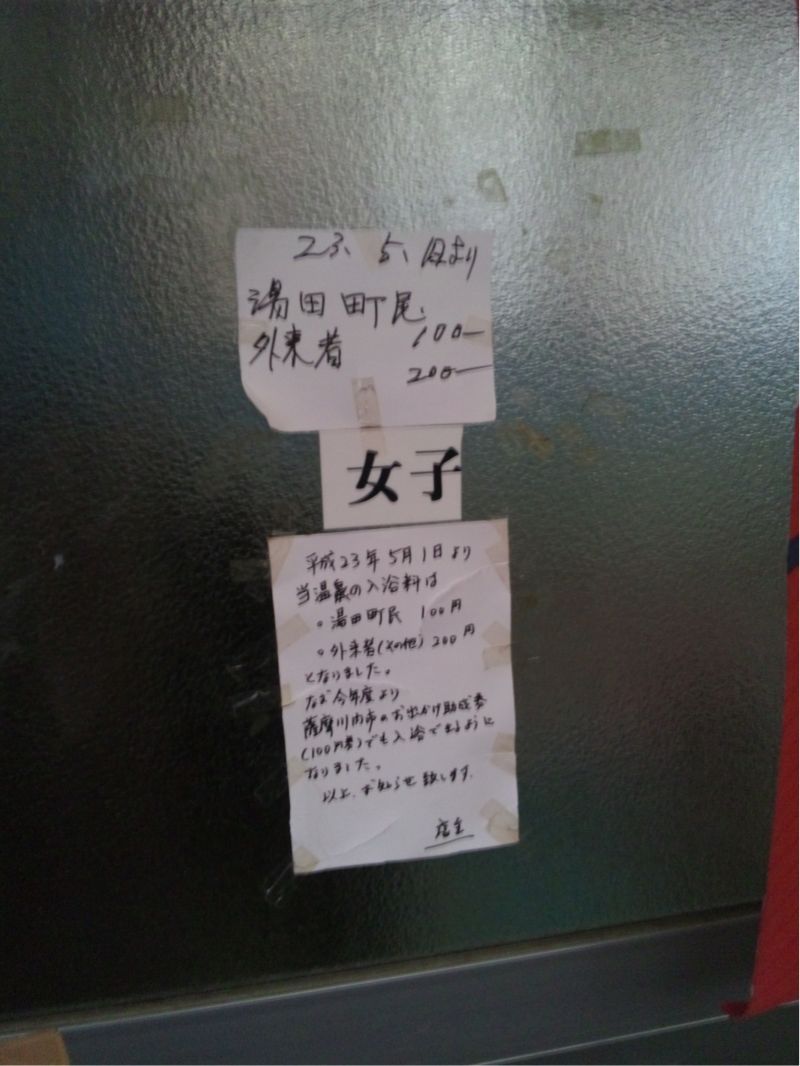 23、5、1日より
湯田町民
100ー
外来者
200ー
女子
平成23年5月1日より
当温泉の入浴料は
。湯田町民 100円
。外来者(その他) 200円
となりました。
なお今年度より
薩摩川内市のお出かけ助成券
(100円券)でも入浴出来るように
なりました。
以上、お知らせ致します。
店主